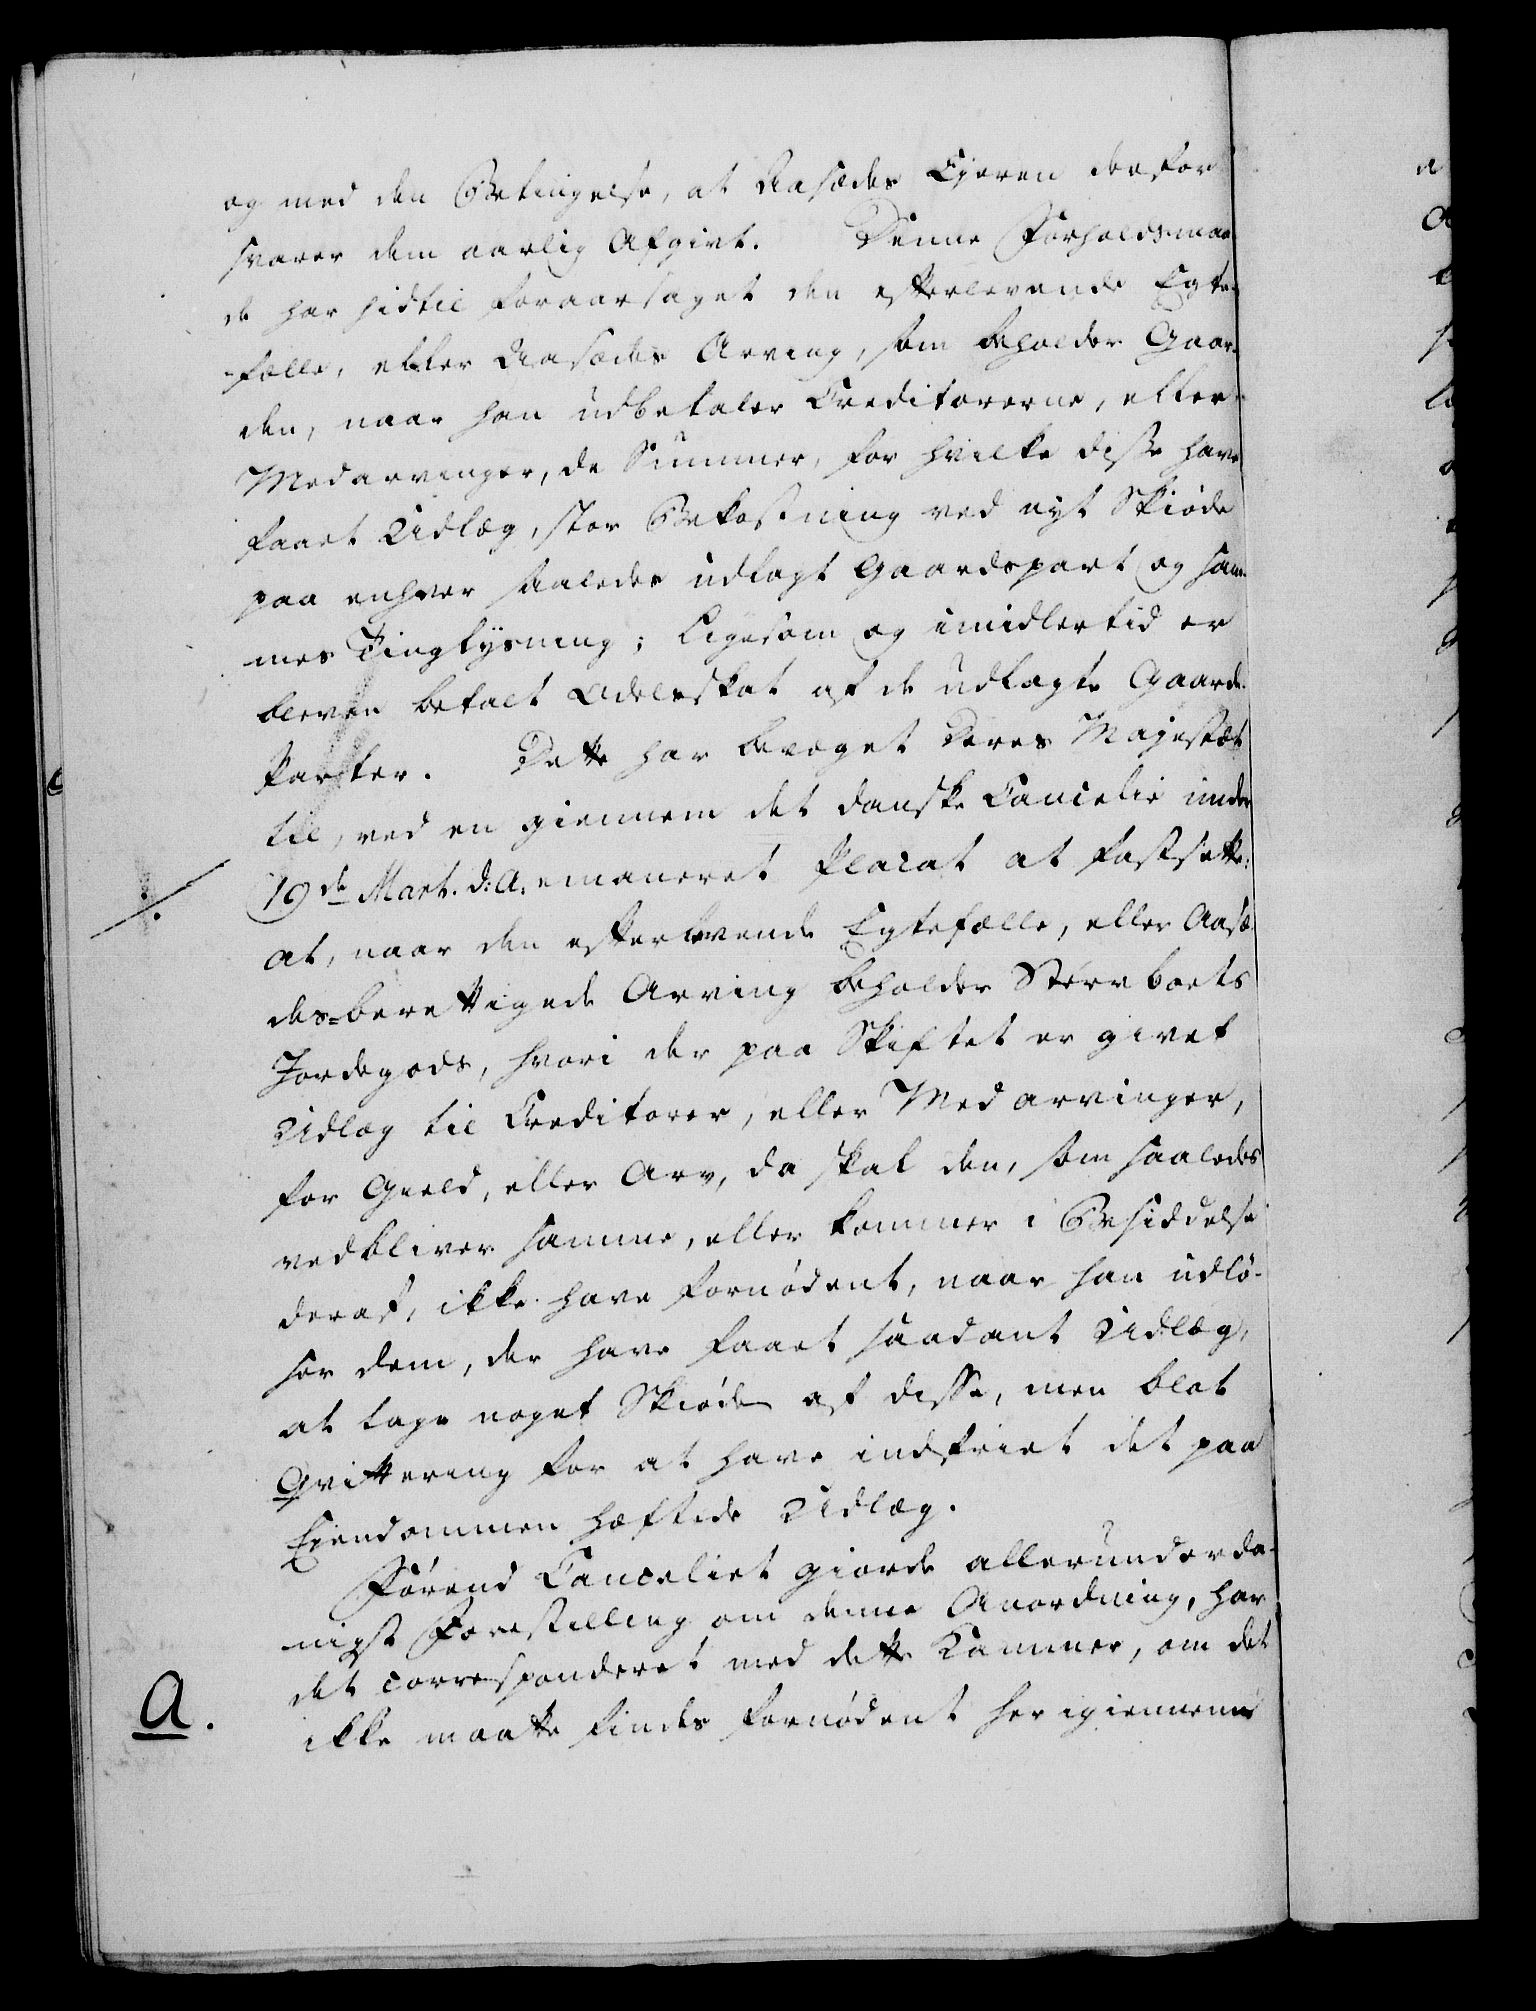 og med den Betingelse, at Aasædes Ejeren derfor
svarer dem aarlig Afgivt. Denne Forholdsmaa
de har hidtil foraarsaget den efterlevende Egte-
fælle, eller Aasædes Arving, som beholder Gaar-
den, naar han udbetaler Creditorerne, eller
Medarvinger, de Summer, for hvilke disse have
faaet Udlæg, stor Bekostning ved nyt Skiøde
paa enhver saaledes udlagt Gaardspart og sam-
mes Tinglysning; ligesom og imidlertid er
bleven betalt Odelsskat af de udlagte Gaarde-
Parter. Dette har bevæget Deres Majestæt
til, ved en giennem det danske Cancelie under
19de Mart. d: A: emaneret Placat at fastsette:
at, naar den efterlevende Egtefælle, eller Aasæ-
des-berettigede Arving beholder Stervboets
Jordegods, hvori der paa Skiftet er givet
Udlæg til Creditorer, eller Medarvinger,
for Gield, eller Arv, da skal den, som saaledes
vedbliver samme, eller kommer i Besiddelse
deraf, ikke have fornødent, naar han udlø-
ser dem, der have faaet saadant Udlæg,
at tage noget Skiøde af disse, men blot
Qvittering for at have indfriet det paa
Ejendommen hæftede Udlæg.
Førend Canceliet giorde allerunderda-
nigst Forestilling om denne Anordning, har
det correspondert med dette Kammer, om det
A. ikke maatte findes fornødent her igiennem